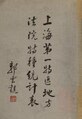 上海第一特區地方
法院特種統計表